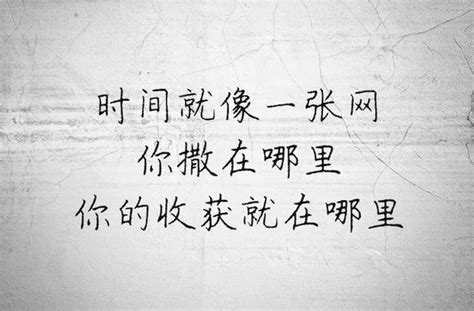 时间就像一张网
你撒在哪里
你的收获就在哪里